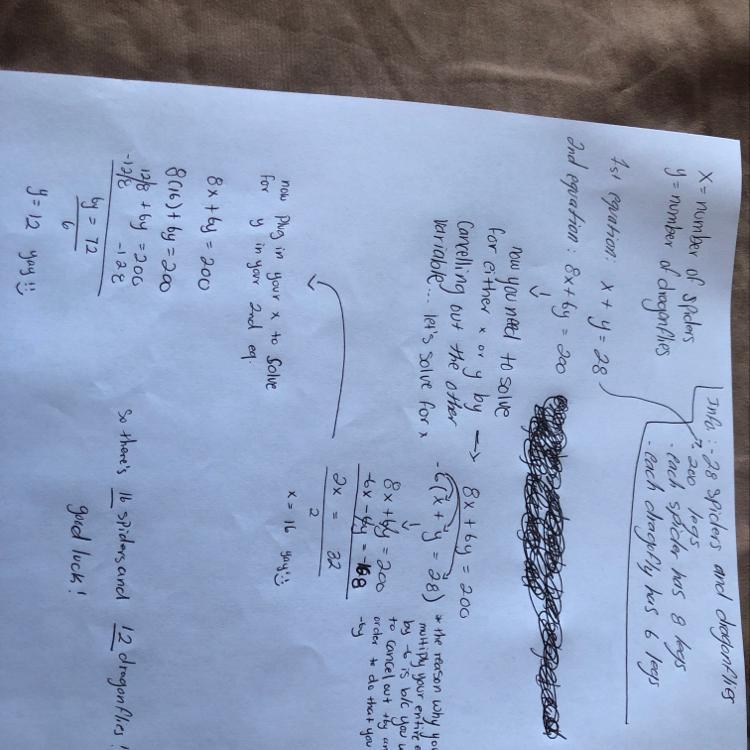 x = number of spiders
y = number of dragonflies
Info: - 28 spiders and dragonflies
- 200 legs
- each spider has 8 legs
- each dragonfly has 6 legs
1st equation: x + y = 28
2nd equation: 8x + 6y = 200
now you need to solve
for either x or y by →
cancelling out the other
variable... let's solve for x
8x + 6y = 200
-6(x + y = 28)
8x + 6y = 200
-6x - 6y = -168
2x = 32
2
x = 16 yay!
* the reason why yo
multiply your entire e
by -6 is b/c you w
to cancel out +6y an
order to do that you
-6y
now plug in your x to solve
for y in your 2nd eq.
8x + 6y = 200
8(16) + 6y = 200
128 + 6y = 200
-128 -128
6y = 72
6
y = 12 yay!
So there's 16 spiders and 12 dragonflies!
good luck!